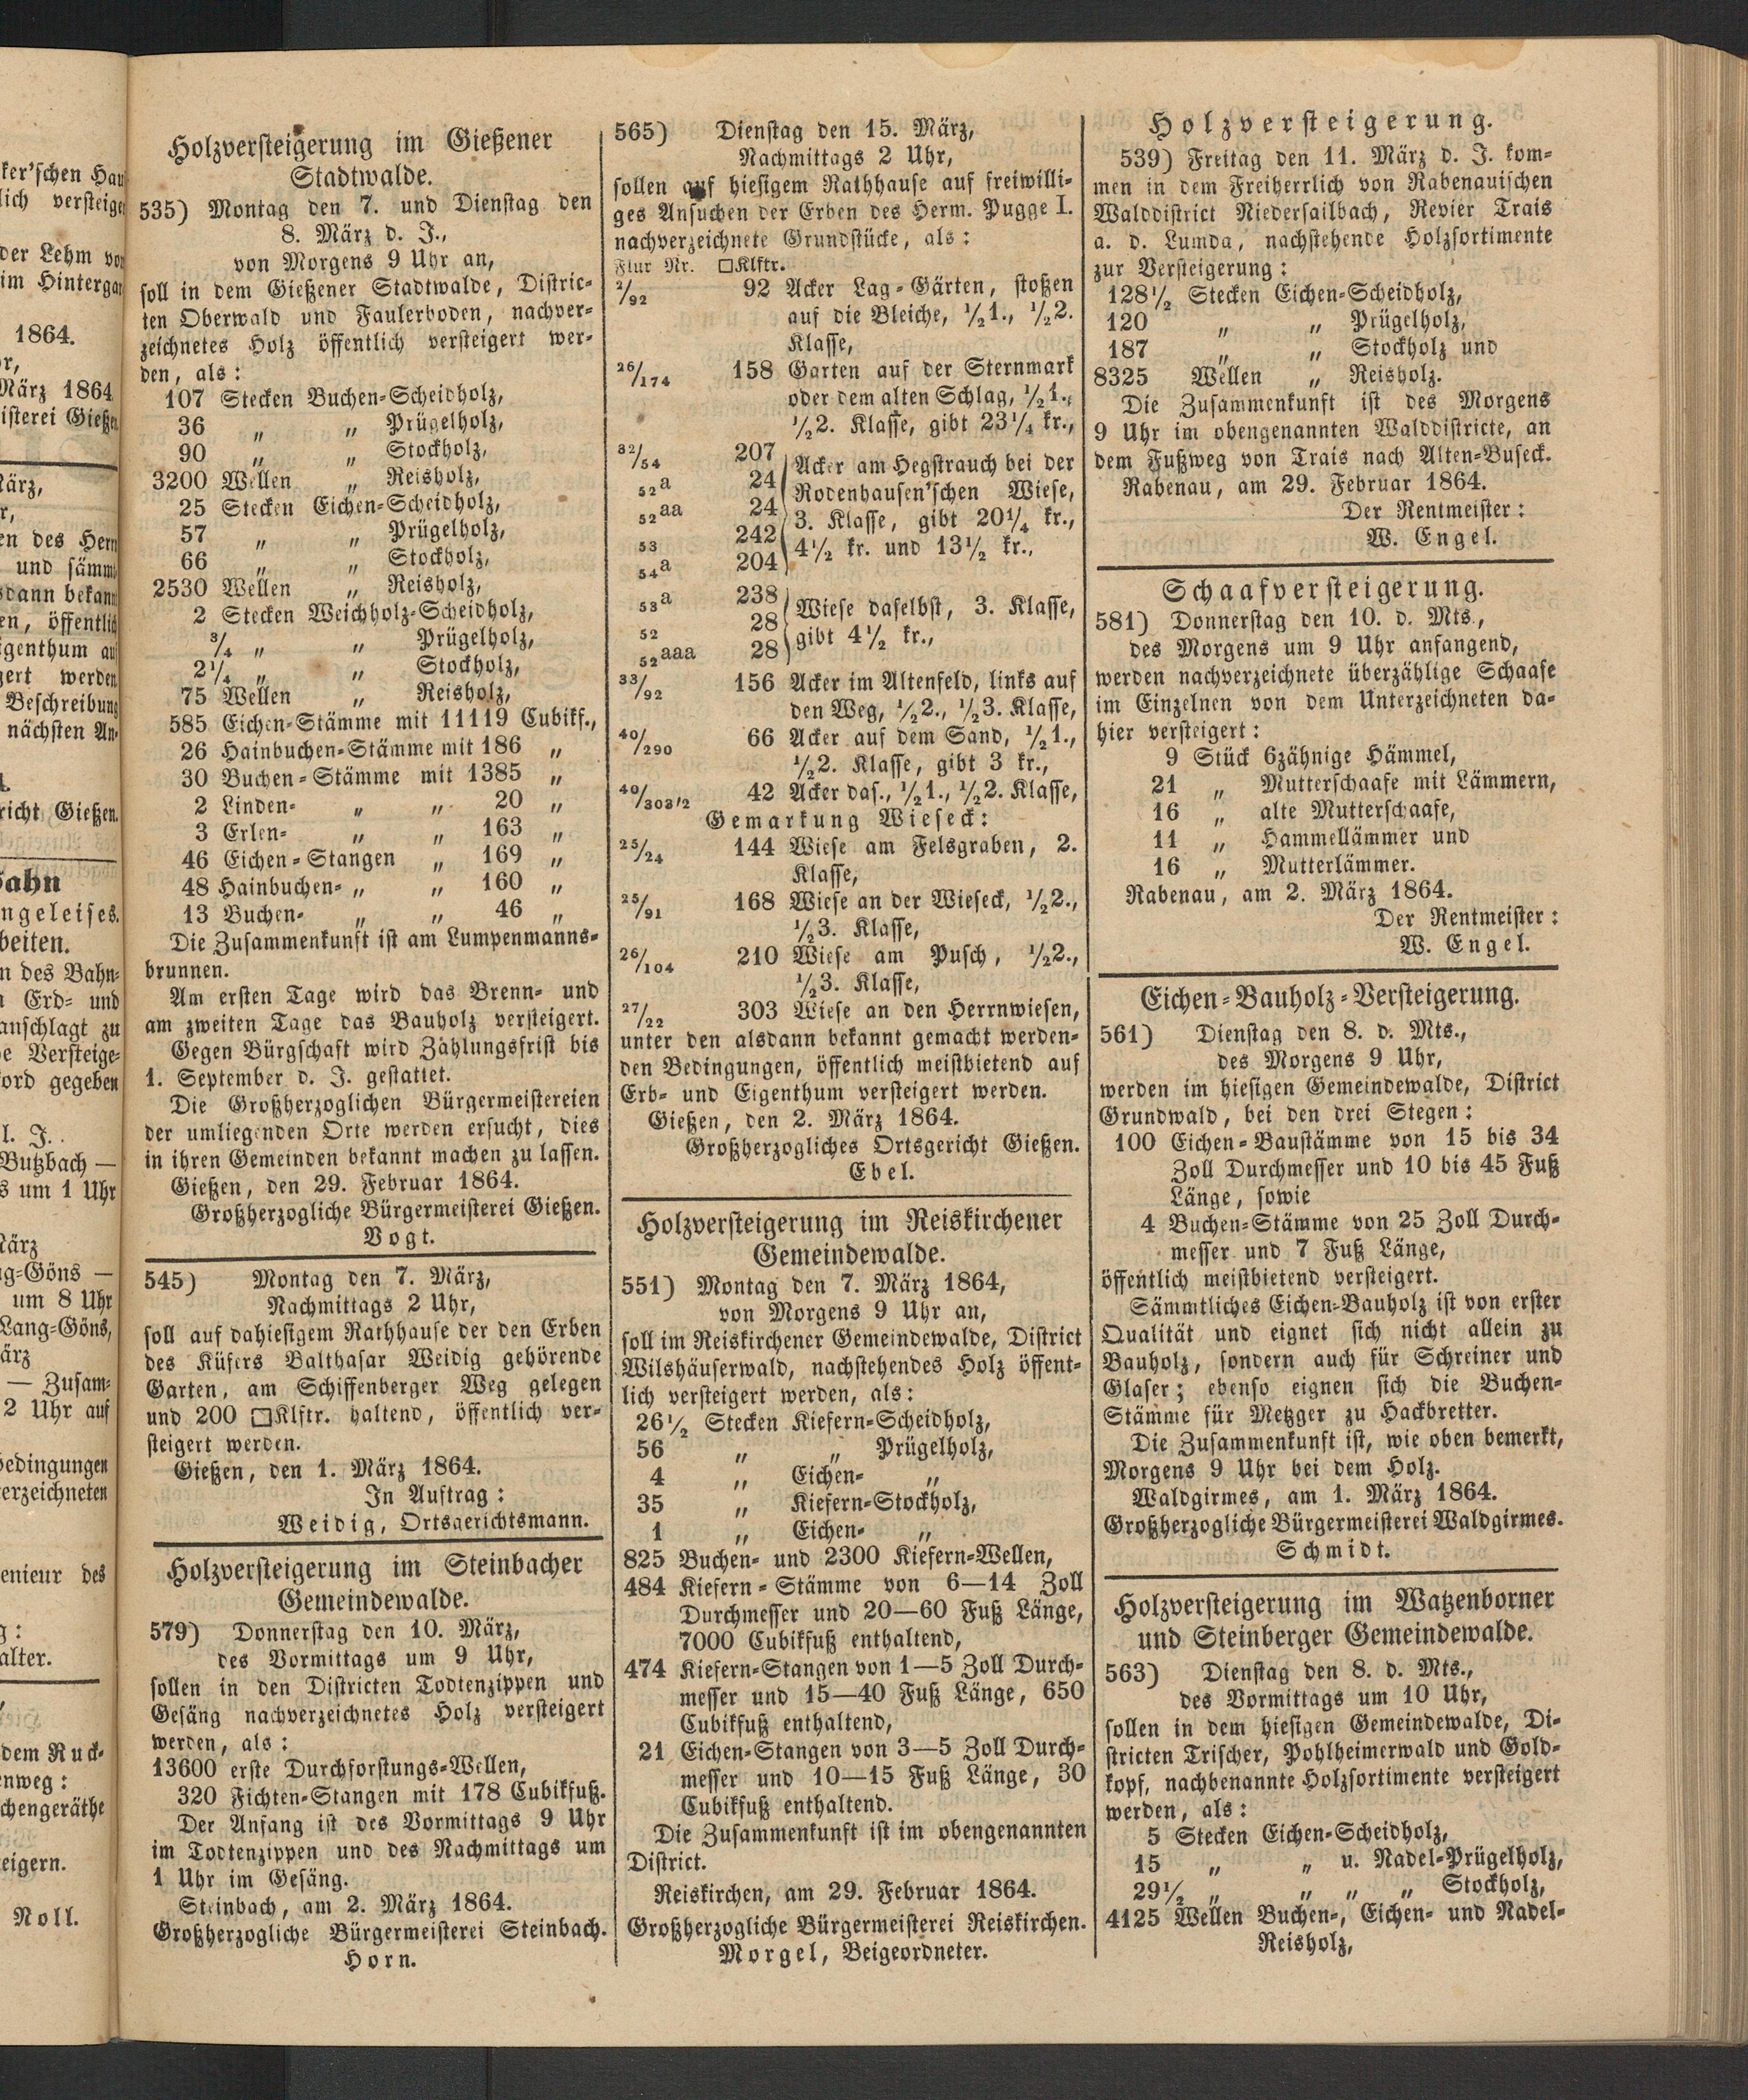 ker'schen Hau
lich versteige
der Lehm vo
im Hinterga
1864.
März 1864
isterei Gieße
en des Herrn
und sämm
dann bekan
en, öffentlich
igenthum au
gert werden
Beschreibung
nächsten An-
richt Gießen.
ngeleises.
beiten.
n des Bahn-
Erd- und
anschlagt zu
e Versteige-
ord gegeben
l. J.
Butzbach —
s um 1 Uhr
März
g-Göns —
um 8 Uhr
Lang-Göns,
ärz
— Zusam-
2 Uhr auf
bedingungen
erzeichneten
enieur des
alter.
dem Ruck-
nweg:
chengeräthe
eigern.
Noll.
Holzversteigerung im Gießener
Stadtwalde.
535) Montag den 7. und Dienstag den
8. März d. J.,
von Morgens 9 Uhr an,
soll in dem Gießener Stadtwalde, Distric-
ten Oberwald und Faulerboden, nachver-
zeichnetes Holz öffentlich versteigert wer-
den, als:
107 Stecken Buchen-Scheidholz,
36 „ „ Prügelholz,
90 „ „ Stockholz,
3200 Wellen „ Reisholz,
25 Stecken Eichen-Scheidholz,
57 „ „ Prügelholz,
66 „ „ Stockholz,
2530 Wellen „ Reisholz,
2 Stecken Weichholz-Scheidholz,
3/4 „ „ Prügelholz,
2 1/4 „ „ Stockholz,
75 Wellen „ Reisholz,
585 Eichen-Stämme mit 11119 Cubikf.,
26 Hainbuchen-Stämme mit 186 „
30 Buchen-Stämme mit 1385 „
2 Linden- „ „ 20 „
3 Erlen- „ „ 163 „
46 Eichen-Stangen „ 169 „
48 Hainbuchen- „ „ 160 „
13 Buchen- „ „ 46 „
Die Zusammenkunft ist am Lumpenmanns-
brunnen.
Am ersten Tage wird das Brenn- und
am zweiten Tage das Bauholz versteigert.
Gegen Bürgschaft wird Zahlungsfrist bis
1. September d. J. gestattet.
Die Großherzoglichen Bürgermeistereien
der umliegenden Orte werden ersucht, dies
in ihren Gemeinden bekannt machen zu lassen.
Gießen, den 29. Februar 1864.
Großherzogliche Bürgermeisterei Gießen.
Vogt.
545) Montag den 7. März,
Nachmittags 2 Uhr,
soll auf dahiesigem Rathhause der den Erben
des Küfers Balthasar Weidig gehörende
Garten, am Schiffenberger Weg gelegen
und 200 □Klftr. haltend, öffentlich ver-
steigert werden.
Gießen, den 1. März 1864.
In Auftrag:
Weidig, Ortsgerichtsmann.
Holzversteigerung im Steinbacher
Gemeindewalde.
579) Donnerstag den 10. März,
des Vormittags um 9 Uhr,
sollen in den Districten Todtenzippen und
Gesäng nachverzeichnetes Holz versteigert
werden, als:
13600 erste Durchforstungs-Wellen,
320 Fichten-Stangen mit 178 Cubikfuß.
Der Anfang ist des Vormittags 9 Uhr
im Todtenzippen und des Nachmittags um
1 Uhr im Gesäng.
Steinbach, am 2. März 1864.
Großherzogliche Bürgermeisterei Steinbach.
Horn.
565) Dienstag den 15. März,
Nachmittags 2 Uhr,
sollen auf hiesigem Rathhause auf freiwilli-
ges Ansuchen der Erben des Herm. Pugge I.
nachverzeichnete Grundstücke, als:
Flur Nr. □Klftr.
2/92 92 Acker Lag-Gärten, stoßen
auf die Bleiche, 1/2 1., 1/2 2.
Klasse,
26/174 158 Garten auf der Sternmark
oder dem alten Schlag, 1/2 1.,
1/2 2. Klasse, gibt 23 1/4 kr.,
32/54 207 Acker am Hegstrauch bei der
52a 24 Rodenhausen'schen Wiese,
52aa 24 3. Klasse, gibt 20 1/4 kr.,
53 242 4 1/2 kr. und 13 1/2 kr.,
54a 204
53a 238 Wiese daselbst, 3. Klasse,
52 28 gibt 4 1/2 kr.,
52aaa 28
33/92 156 Acker im Altenfeld, links auf
den Weg, 1/2 2., 1/2 3. Klasse,
40/290 66 Acker auf dem Sand, 1/2 1.,
1/2 2. Klasse, gibt 3 kr.,
40/303 1/2 42 Acker das., 1/2 1., 1/2 2. Klasse,
Gemarkung Wieseck:
25/24 144 Wiese am Felsgraben, 2.
Klasse,
25/91 168 Wiese an der Wieseck, 1/2 2.,
1/2 3. Klasse,
26/104 210 Wiese am Pusch, 1/2 2.,
1/2 3. Klasse,
27/22 303 Wiese an den Herrnwiesen,
unter den alsdann bekannt gemacht werden-
den Bedingungen, öffentlich meistbietend auf
Erb- und Eigenthum versteigert werden.
Gießen, den 2. März 1864.
Großherzogliches Ortsgericht Gießen.
Ebel.
Holzversteigerung im Reiskirchener
Gemeindewalde.
551) Montag den 7. März 1864,
von Morgens 9 Uhr an,
soll im Reiskirchener Gemeindewalde, District
Wilshäuserwald, nachstehendes Holz öffent-
lich versteigert werden, als:
26 1/2 Stecken Kiefern-Scheidholz,
56 „ „ Prügelholz,
4 „ Eichen- „
35 „ Kiefern-Stockholz,
1 „ Eichen- „
825 Buchen- und 2300 Kiefern-Wellen,
484 Kiefern-Stämme von 6—14 Zoll
Durchmesser und 20—60 Fuß Länge,
7000 Cubikfuß enthaltend,
474 Kiefern-Stangen von 1—5 Zoll Durch-
messer und 15—40 Fuß Länge, 650
Cubikfuß enthaltend,
21 Eichen-Stangen von 3—5 Zoll Durch-
messer und 10—15 Fuß Länge, 30
Cubikfuß enthaltend.
Die Zusammenkunft ist im obengenannten
District.
Reiskirchen, am 29. Februar 1864.
Großherzogliche Bürgermeisterei Reiskirchen.
Morgel, Beigeordneter.
Holzversteigerung.
539) Freitag den 11. März d. J. kom-
men in dem Freiherrlich von Rabenauischen
Walddistrict Niedersailbach, Revier Trais
a. d. Lumda, nachstehende Holzsortimente
zur Versteigerung:
128 1/2 Stecken Eichen-Scheidholz,
120 „ „ Prügelholz,
187 „ „ Stockholz und
8325 Wellen „ Reisholz.
Die Zusammenkunft ist des Morgens
9 Uhr im obengenannten Walddistricte, an
dem Fußweg von Trais nach Alten-Buseck.
Rabenau, am 29. Februar 1864.
Der Rentmeister:
W. Engel.
Schaafversteigerung.
581) Donnerstag den 10. d. Mts.,
des Morgens um 9 Uhr anfangend,
werden nachverzeichnete überzählige Schaafe
im Einzelnen von dem Unterzeichneten da-
hier versteigert:
9 Stück 6zähnige Hämmel,
21 „ Mutterschaafe mit Lämmern,
16 „ alte Mutterschaafe,
11 „ Hammellämmer und
16 „ Mutterlämmer.
Rabenau, am 2. März 1864.
Der Rentmeister:
W. Engel.
Eichen-Bauholz-Versteigerung.
561) Dienstag den 8. d. Mts.,
des Morgens 9 Uhr,
werden im hiesigen Gemeindewalde, District
Grundwald, bei den drei Stegen:
100 Eichen-Baustämme von 15 bis 34
Zoll Durchmesser und 10 bis 45 Fuß
Länge, sowie
4 Buchen-Stämme von 25 Zoll Durch-
messer und 7 Fuß Länge,
öffentlich meistbietend versteigert.
Sämmtliches Eichen-Bauholz ist von erster
Qualität und eignet sich nicht allein zu
Bauholz, sondern auch für Schreiner und
Glaser; ebenso eignen sich die Buchen-
Stämme für Metzger zu Hackbretter.
Die Zusammenkunft ist, wie oben bemerkt,
Morgens 9 Uhr bei dem Holz.
Waldgirmes, am 1. März 1864.
Großherzogliche Bürgermeisterei Waldgirmes.
Schmidt.
Holzversteigerung im Watzenborner
und Steinberger Gemeindewalde.
563) Dienstag den 8. d. Mts.,
des Vormittags um 10 Uhr,
sollen in dem hiesigen Gemeindewalde, Di-
stricten Trischer, Pohlheimerwald und Gold-
kopf, nachbenannte Holzsortimente versteigert
werden, als:
5 Stecken Eichen-Scheidholz,
15 „ „ u. Nadel-Prügelholz,
29 1/2 „ „ „ „ Stockholz,
4125 Wellen Buchen-, Eichen- und Nadel-
Reisholz,